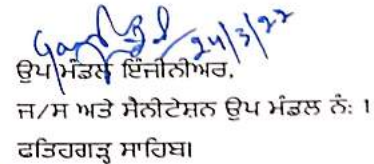 24/3/22
ਉਪ ਮੰਡਲ ਇੰਜੀਨੀਅਰ,
ਜ/ਸ ਅਤੇ ਸੈਨੀਟੇਸ਼ਨ ਉਪ ਮੰਡਲ ਨੰ: 1
ਫਤਿਹਗੜ੍ਹ ਸਾਹਿਬ।